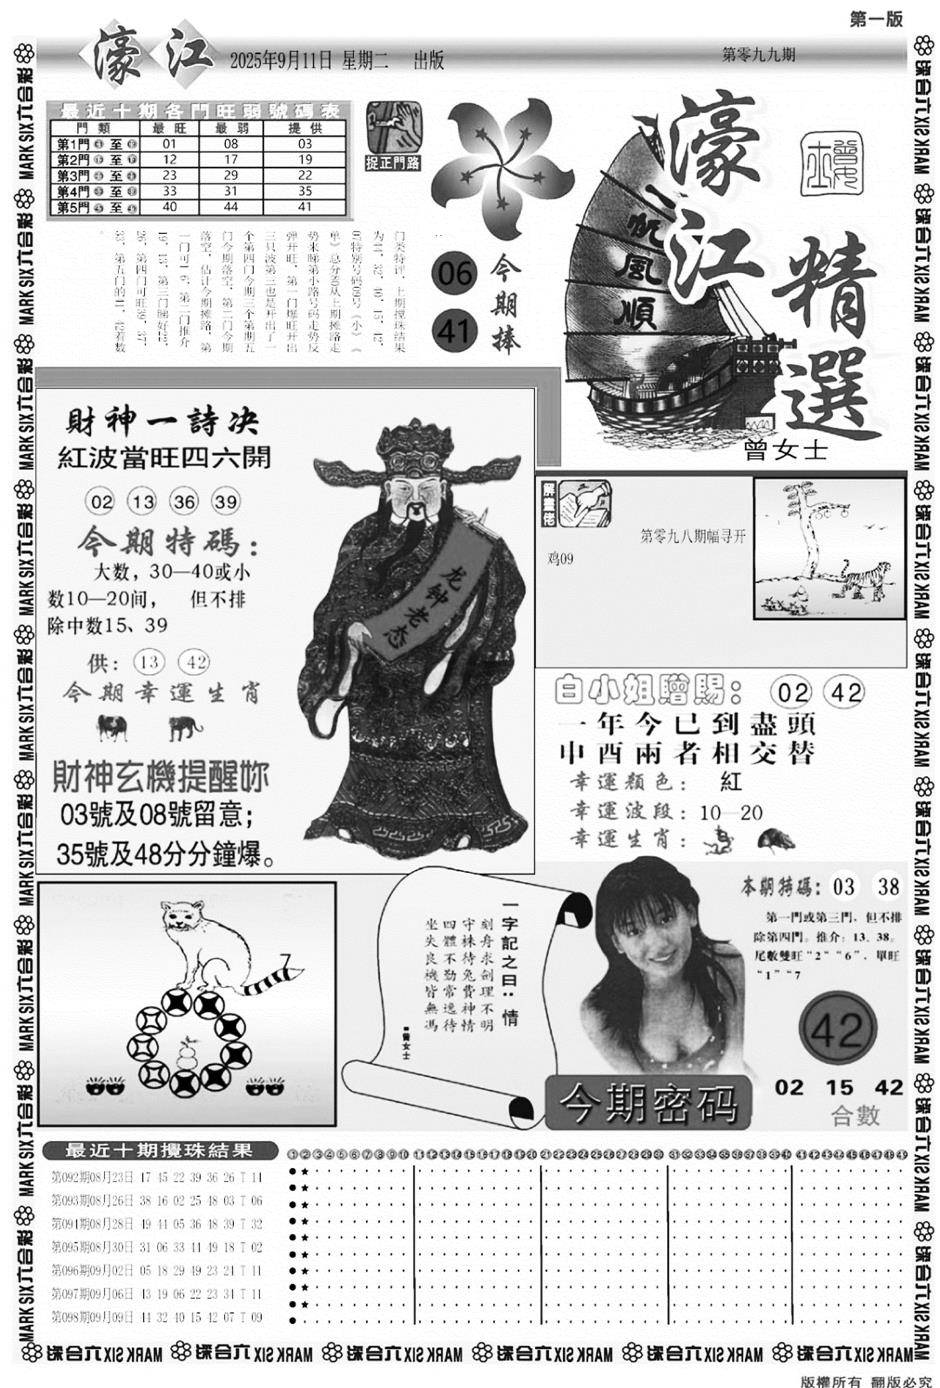 第一版
濠江
2025年9月11日 星期二 出版
第零九九期
最近十期各門旺弱號碼表
門類 最旺 最弱 提供
第1門 至 01 08 03
第2門 至 12 17 19
第3門 至 23 29 22
第4門 至 33 31 35
第5門 至 40 44 41
捉正門路
06
41
今期捧
一帆風順
濠江
精選
曾女士
財神一詩决
紅波當旺四六開
02 13 36 39
今期特碼：
大数，30—40或小
数10—20间， 但不排
除中数15、39
供： 13 42
今期幸運生肖
財神玄機提醒妳
03號及08號留意；
35號及48分分鐘爆。
龙钟老态
解畫港
第零九八期幅寻开
鸡09
白小姐贈賜： 02 42
一年今已到盡頭
申酉兩者相交替
幸運顏色： 紅
幸運波段：10—20
幸運生肖：
7
一字記之曰：情
刻舟求劍理不明
守株待兔費神情
四體不勤常逸待
坐失良機皆無馮
■曾女士
本期特碼：03 38
第一門或第三門，但不排
除第四門。推介：13．38。
尾數雙旺“2”“6”．單旺
“1”“7
42
今期密码
02 15 42
合數
最近十期攪珠結果
第092期08月23日 17 45 22 39 36 26 T 14
第093期08月26日 38 16 02 25 48 03 T 06
第094期08月28日 49 44 05 36 48 39 T 32
第095期08月30日 31 06 33 44 49 18 T 02
第096期09月02日 05 18 29 49 23 24 T 11
第097期09月06日 43 19 06 22 23 34 T 11
第098期09月09日 44 32 40 15 42 07 T 09
六合彩 MARK SIX
版權所有 翻版必究